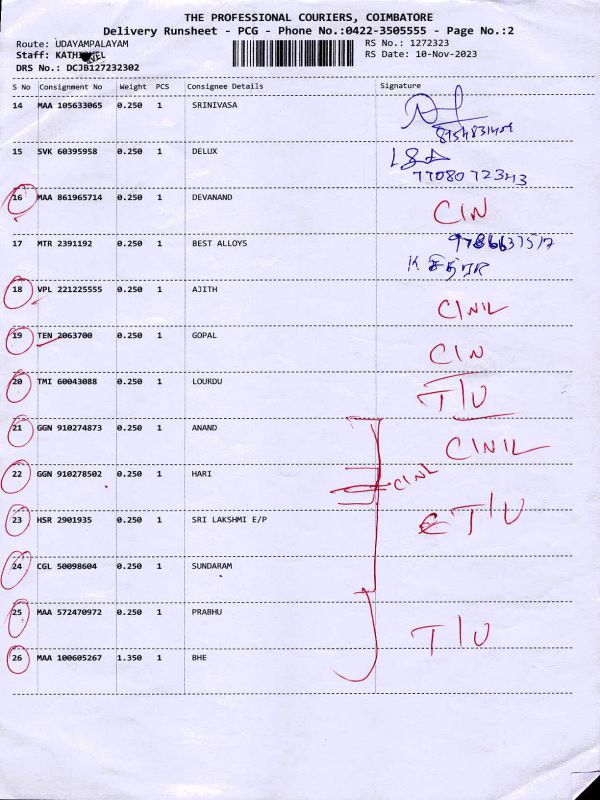 THE PROFESSIONAL COURIERS, COIMBATORE
Delivery Runsheet - PCG - Phone No.:0422-3505555 - Page No.:2
Route: UDAYAMPALAYAM RS No.: 1272323
Staff: RS Date: 10-Nov-2023
DRS No.: DCJB127232302
S No Consignment No Weight PCS Consignee Details Signature
14 MAA 105633065 0.250 1 SRINIVASA
15 SVK 60395958 0.250 1 DELUX
7708072343
16 MAA 861965714 0.250 1 DEVANAND CIN
17 MTR 2391192 0.250 1 BEST ALLOYS
18 VPL 221225555 0.250 1 AJITH CINIL
19 TEN 2063700 0.250 1 GOPAL CIN
20 TMI 60043088 0.250 1 LOURDU T/U
21 GGN 910274873 0.250 1 ANAND CINIL
22 GGN 910278502 0.250 1 HARI CINL
23 HSR 2901935 0.250 1 SRI LAKSHMI E/P T/U
24 CGL 50098604 0.250 1 SUNDARAM
25 MAA 572470972 0.250 1 PRABHU T/U
26 MAA 100605267 1.350 1 BHE